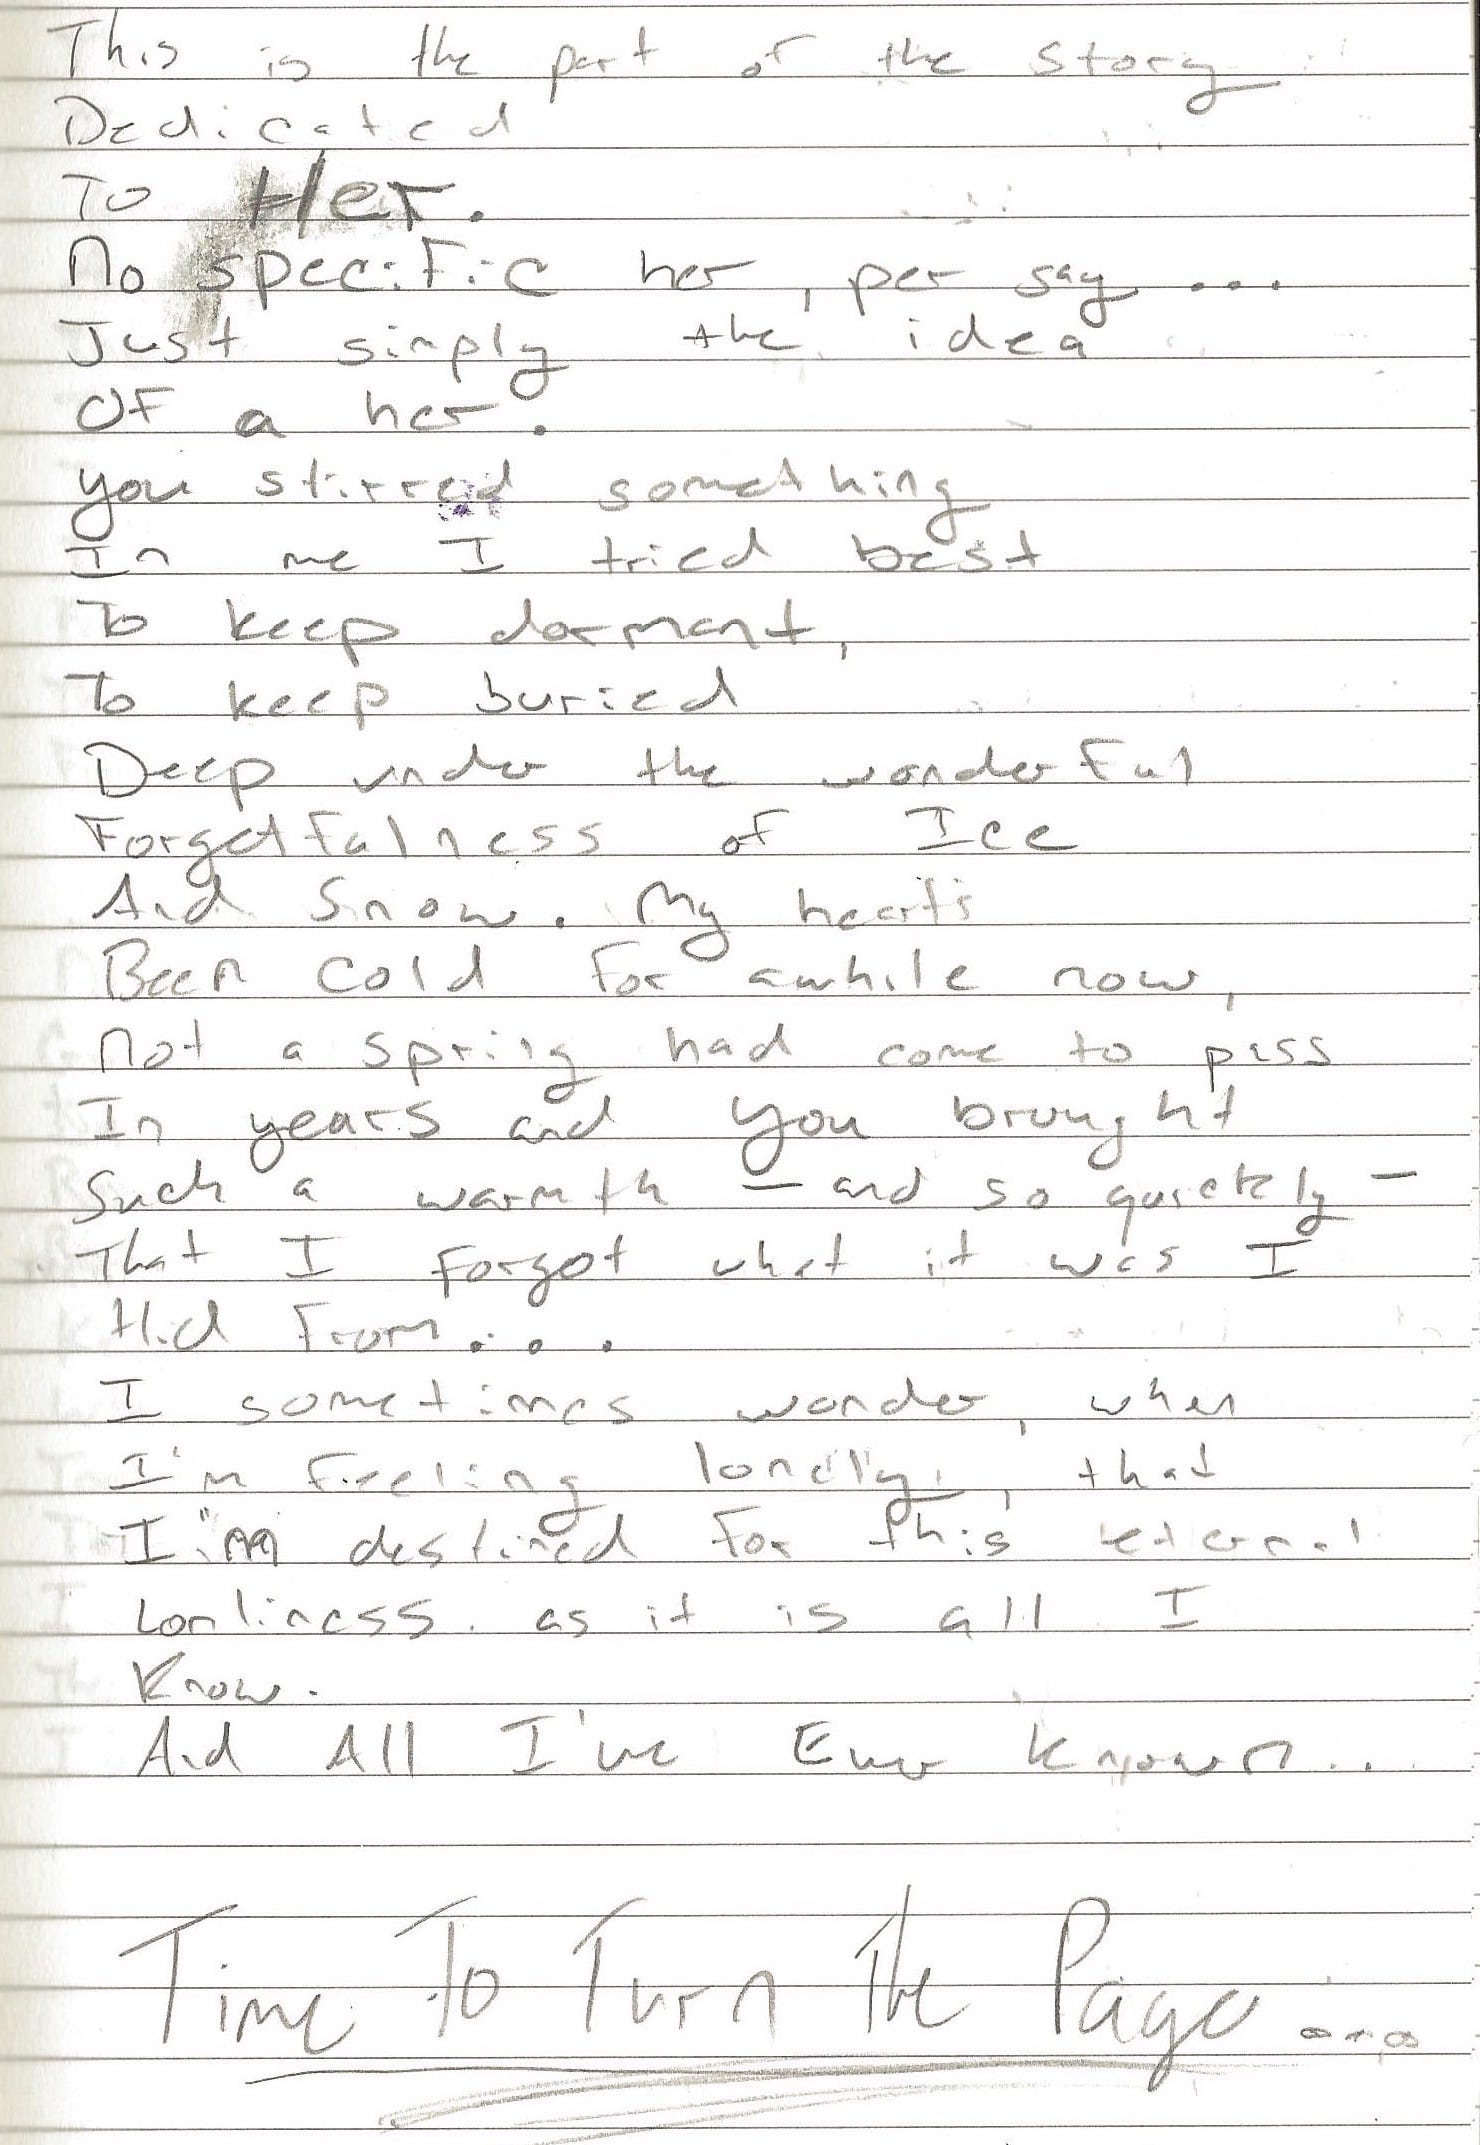 This is the part of the story
Dedicated
To Her.
No specific her, per say...
Just simply the idea
Of a her.
you stirred something
In me I tried best
To keep dormant,
To keep buried
Deep under the wonderful
Forgetfulness of Ice
And Snow. My heart's
Been cold for awhile now,
Not a spring had come to pass
In years and you brought
Such a warmth — and so quickly —
That I forgot what it was I
Hid from...
I sometimes wonder, when
I'm feeling lonely, that
I'm destined for this eternal
Lonliness. as it is all I
Know.
And All I've Ever known...
Time To Turn The Page....